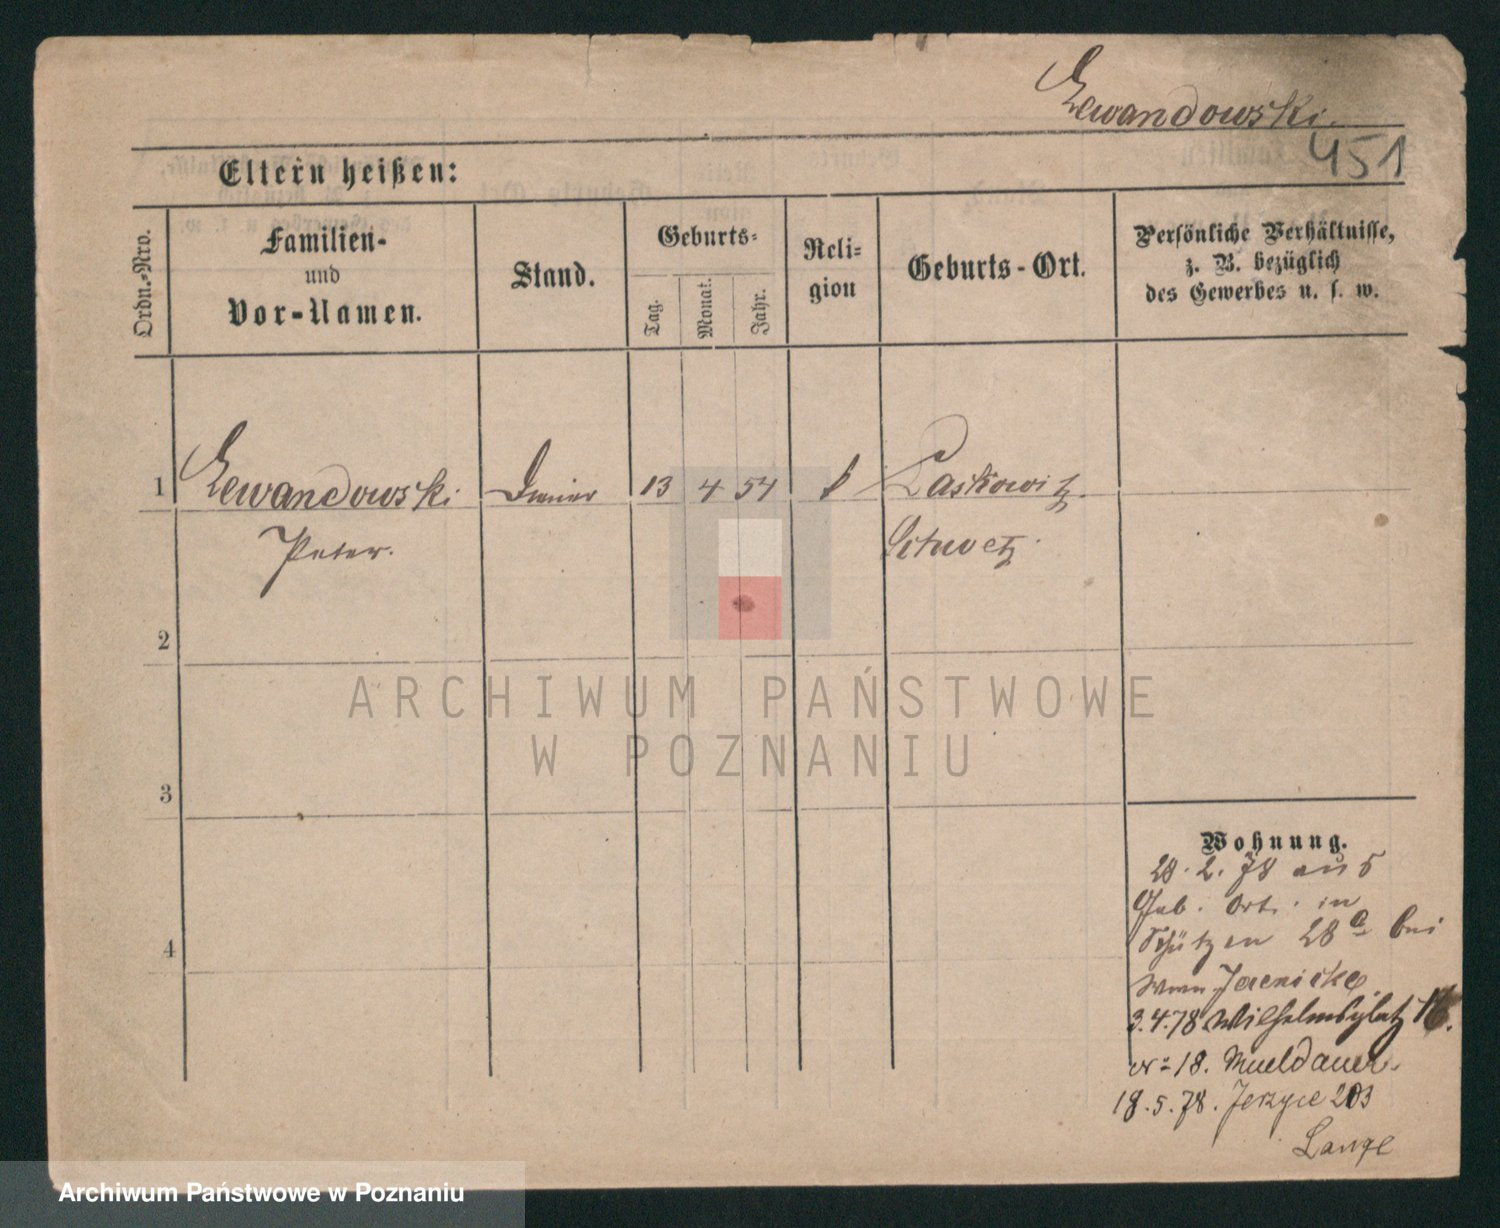 Lewandowski.
451
Eltern heißen:
Ordn.-Nro.
Familien-
und
Vor-Namen.
Stand.
Geburts-
Tag.
Monat.
Jahr.
Reli-
gion
Geburts-Ort.
Persönliche Verhältnisse,
z. B. bezüglich
des Gewerbes u. s. w.
1 Lewandowski Diener 13 4 54 k Laskowitz
Peter. Schwetz
2
3
4
Wohnung.
28. 2. 78 aus
Geb. Ort. in
Schützen 28a bei
Jaenicke
3.4.78 Wilhelmsplatz
18. Mueldauer.
18. 5. 78. Jerzyce 203
Lange
ARCHIWUM PAŃSTWOWE
W POZNANIU
Archiwum Państwowe w Poznaniu